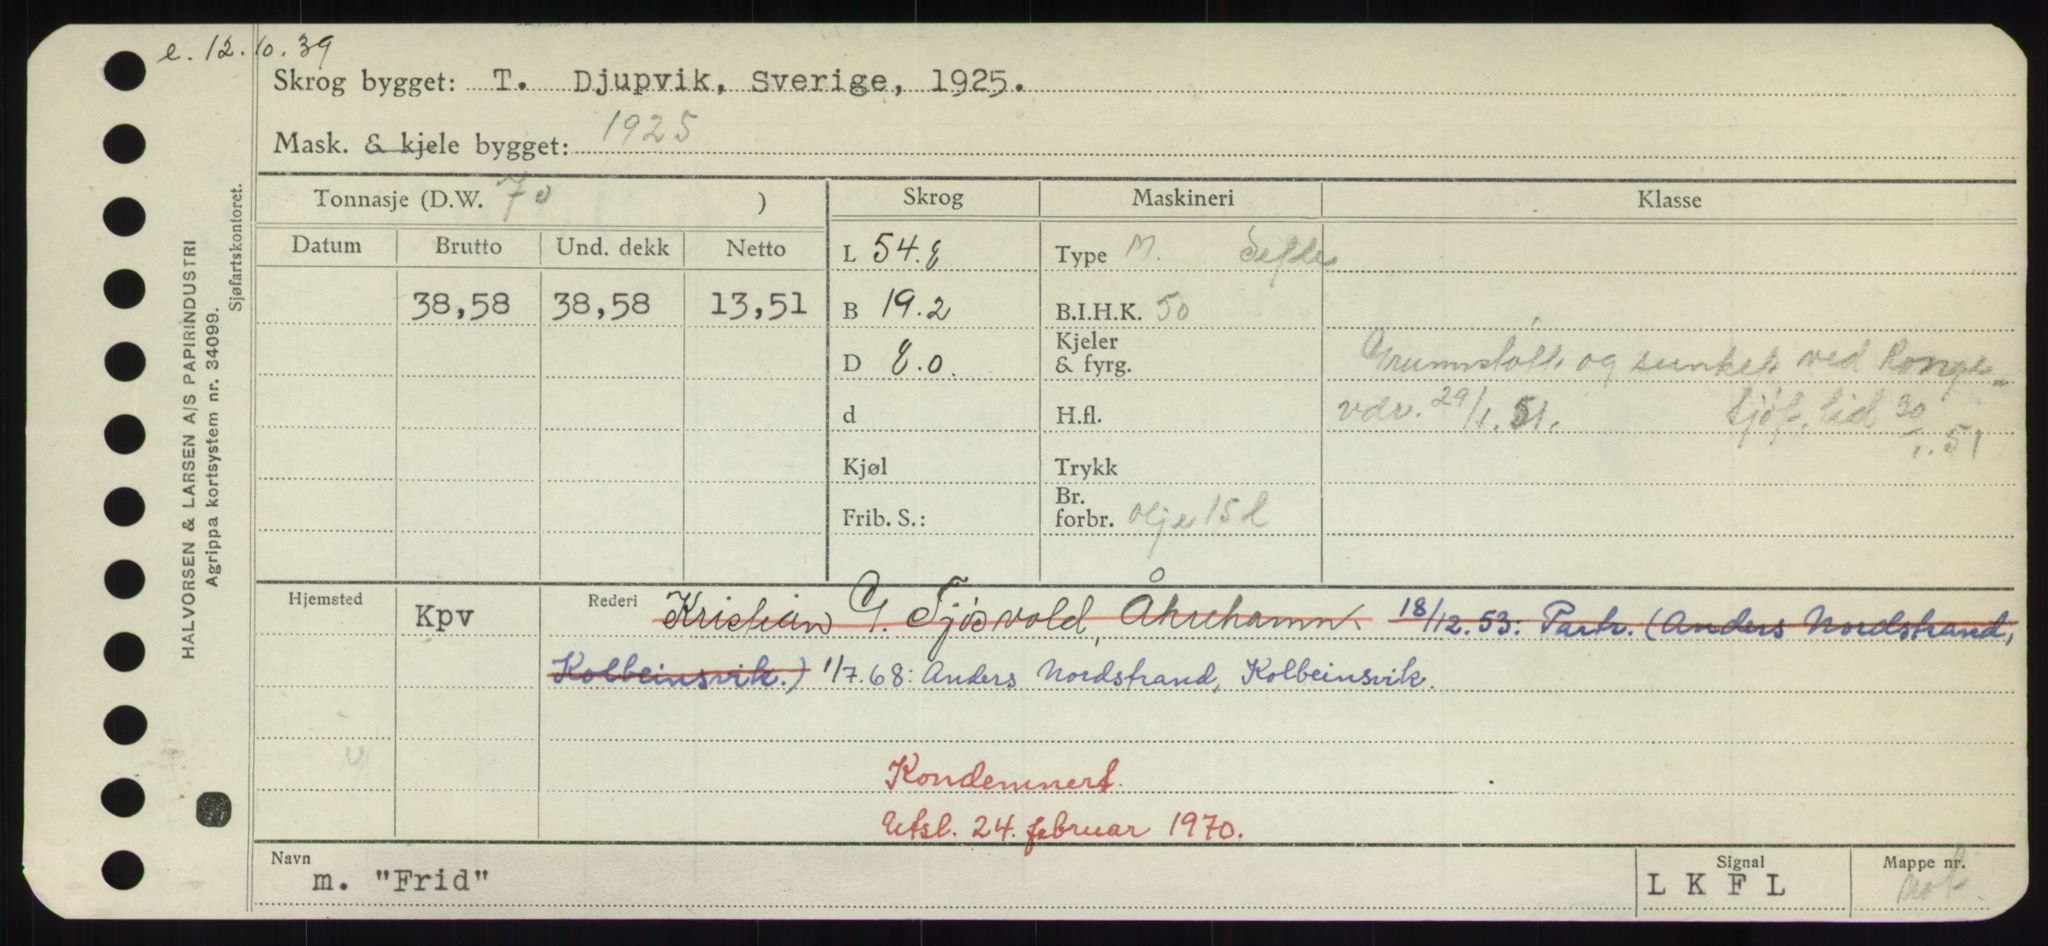 e. 12.10.39
Skrog bygget: T. Djupvik, Sverige, 1925.
Mask. & kjele bygget: 1925
Tonnasje (D.W. 70 )
Skrog
Maskineri
Klasse
Datum
Brutto
Und. dekk
Netto
38,58
38,58
13,51
L 54.8
B 19.2
D 8.0.
d
Kjøl
Frib. S.:
Type M.
B.I.H.K. 50
Kjeler
& fyrg.
H.fl.
Trykk
Br.
forbr. olje 15 l
og sunket ved
vdr. 29/1.51. Sjøf. tid 30/1.51
Hjemsted
Kpv
Rederi Kristian G. Sjøvold, Åkrehamn 18/12.53: Partr. (Anders Nordstrand,
Kolbeinsvik.) 1/7.68: Anders Nordstrand, Kolbeinsvik.
Kondemnert.
Utsl. 24. februar 1970.
Navn
m. "Frid"
Signal
L K F L
Mappe nr.
Mot.
HALVORSEN & LARSEN A/S PAPIRINDUSTRI
Agrippa kortsystem nr. 34099.
Sjøfartskontoret.